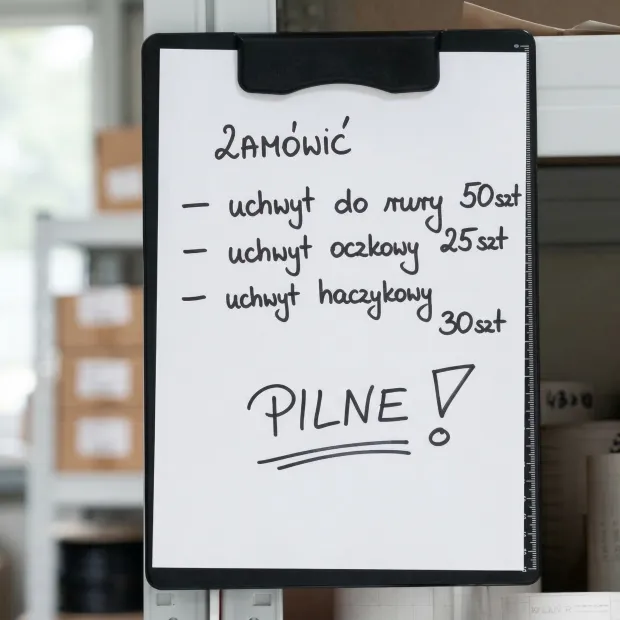 ZAMÓWIĆ
— uchwyt do rury 50szt
— uchwyt oczkowy 25szt
— uchwyt haczykowy
30szt
PILNE!